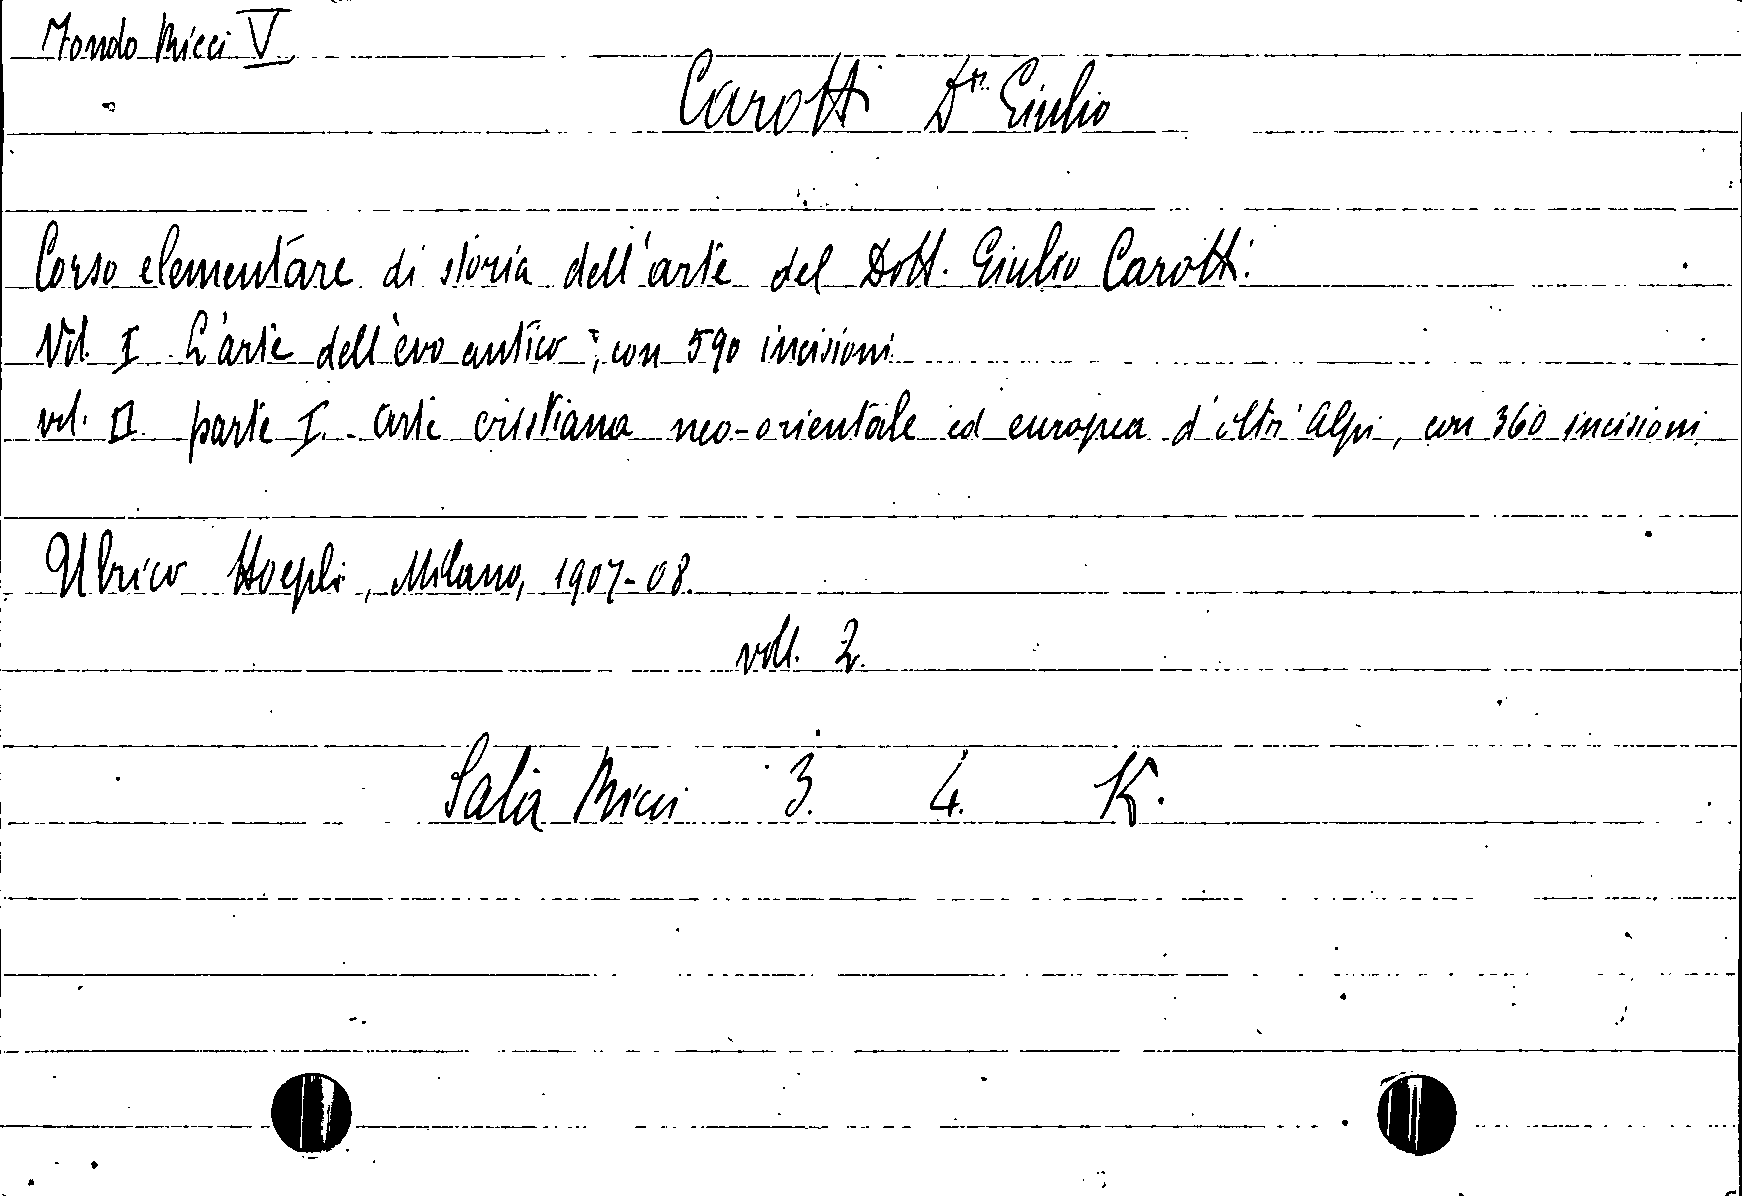 Fondo Ricci V
Carotti Dr. Giulio
Corso elementare di storia dell'arte del Dott. Giulio Carotti.
Vol. I L'arte dell'evo antico; con 590 incisioni
vol. II parte I. Arte cristiana neo-orientale ed europea d'oltr'Alpi, con 360 incisioni
Ulrico Hoepli, Milano, 1907-08.
voll. 2.
Sala Ricci 3. 4. K.